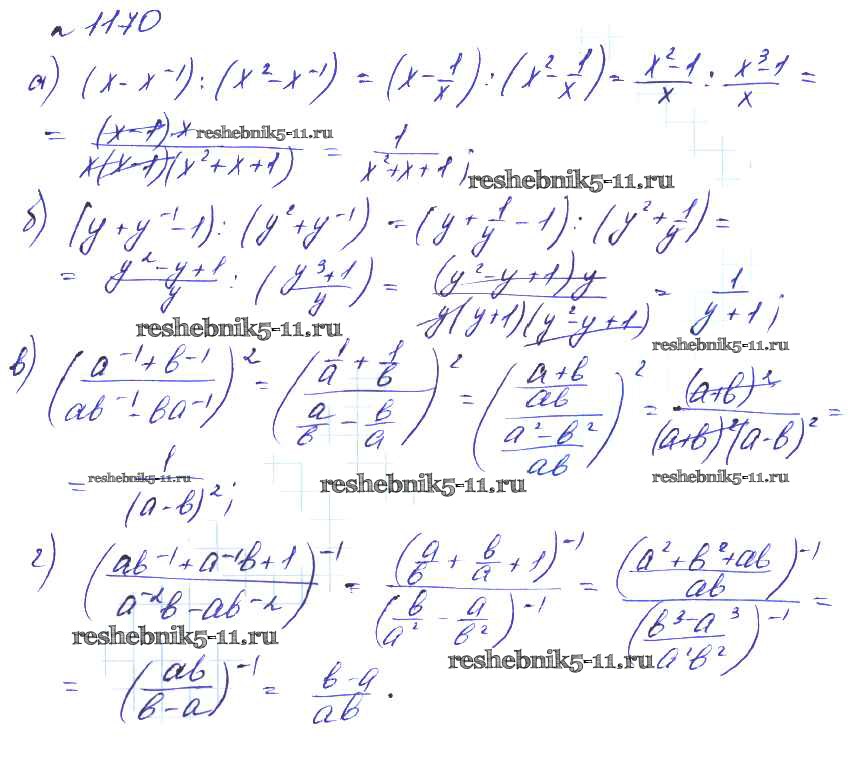 n 1170
а) (x - x⁻¹) : (x² - x⁻¹) = (x - 1/x) : (x² - 1/x) = (x² - 1)/x : (x³ - 1)/x =
= ((x - 1)·x)/(x(x - 1)(x² + x + 1)) = 1/(x² + x + 1);
reshebnik5-11.ru
reshebnik5-11.ru
б) (y + y⁻¹ - 1) : (y² + y⁻¹) = (y + 1/y - 1) : (y² + 1/y) =
= (y² - y + 1)/y : ((y³ + 1)/y) = ((y² - y + 1)y)/(y(y + 1)(y² - y + 1)) = 1/(y + 1);
reshebnik5-11.ru
reshebnik5-11.ru
в) ((a⁻¹ + b⁻¹)/(ab⁻¹ - ba⁻¹))² = ((1/a + 1/b)/(a/b - b/a))² = (((a + b)/ab)/((a² - b²)/ab))² = (a + b)²/((a + b)²(a - b)²) =
= 1/(a - b)²;
reshebnik5-11.ru
reshebnik5-11.ru
reshebnik5-11.ru
г) ((ab⁻¹ + a⁻¹b + 1)/(a⁻²b - ab⁻²))⁻¹ = (a/b + b/a + 1)⁻¹/(b/a² - a/b²)⁻¹ = ((a² + b² + ab)/ab)⁻¹/((b³ - a³)/a²b²)⁻¹ =
reshebnik5-11.ru
reshebnik5-11.ru
= (ab/(b - a))⁻¹ = (b - a)/ab.